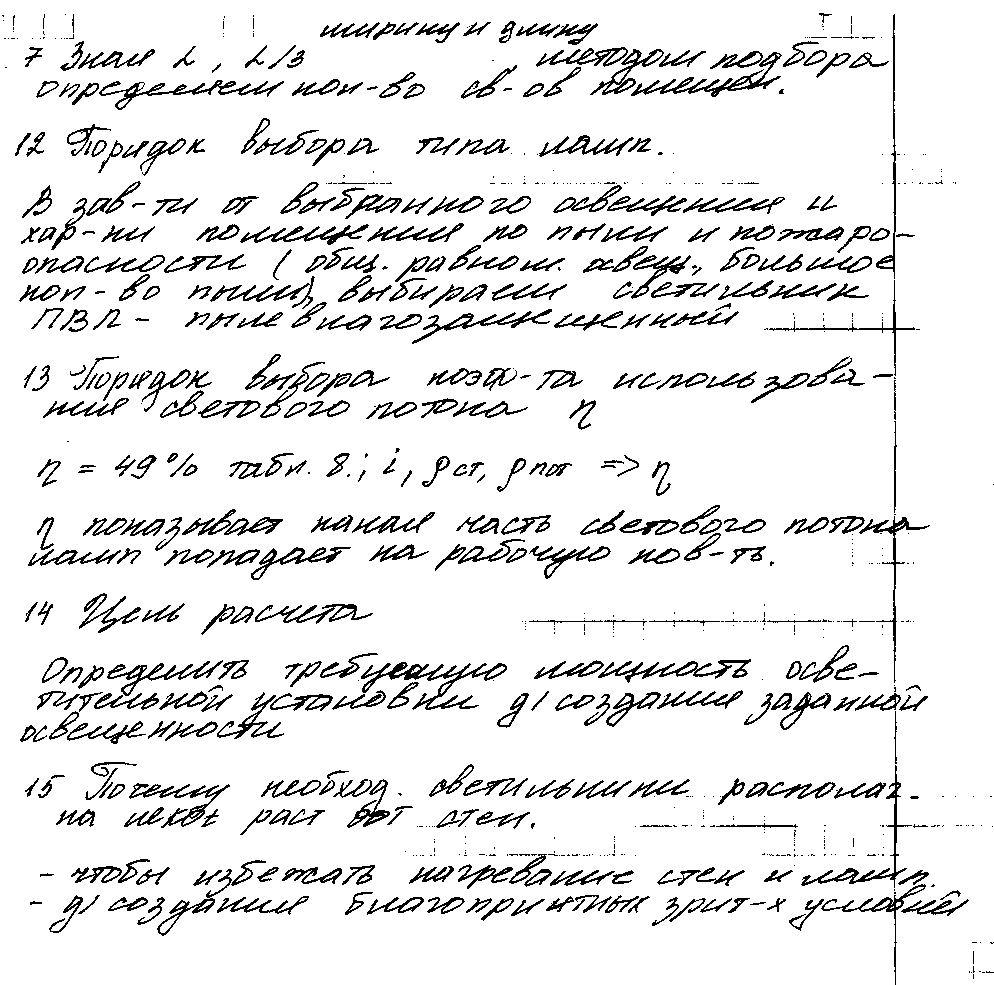 ширину и длину
7 Зная L, L/3 , методом подбора
определяем кол-во св-ов помещен.
12 Порядок выбора типа ламп.
В зав-ти от выбранного освещения и
хар-ки помещения по пыли и пожаро-
опасности (общ. равном. освещ., большое
кол-во пыли), выбираем светильник
ПВЛ - пылевлагозащищенный
13 Порядок выбора коэф-та использова-
ния светового потока η
η = 49% табл. 8.; i, ρст, ρпот => η
η показывает какая часть светового потока
ламп попадает на рабочую пов-ть.
14 Цель расчета
Определить требуемую мощность осве-
тительной установки д/создания заданной
освещенности
15 Почему необход. светильники располаг.
на раст от стен.
- чтобы избежать нагревание стен и ламп.
- д/создания благоприятных зрит-х условий